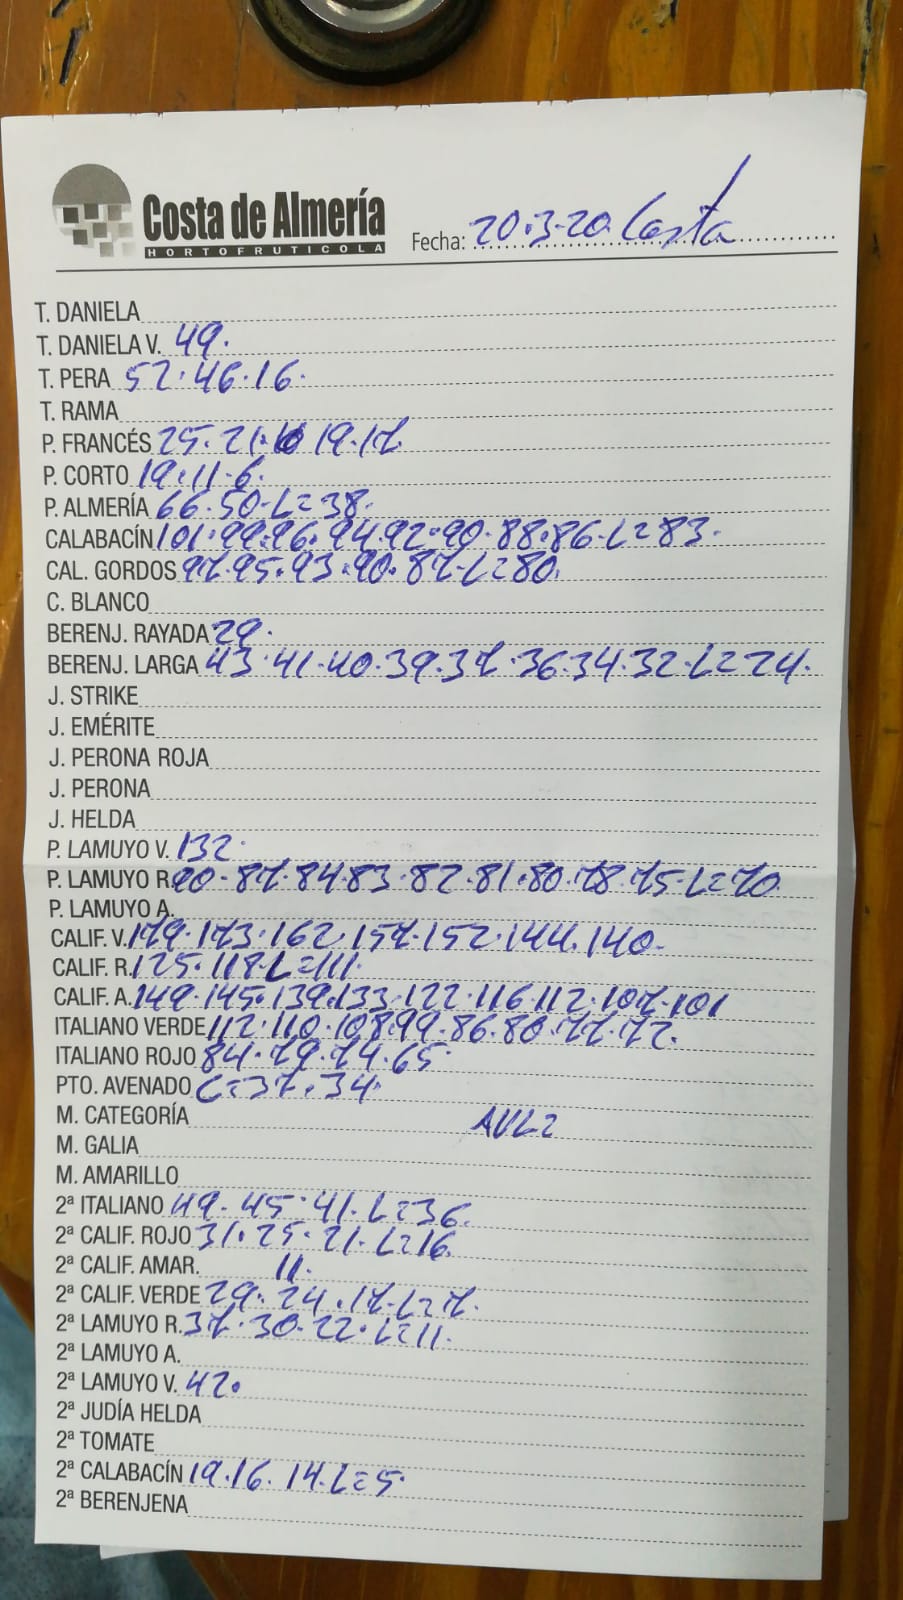 Costa de Almería
HORTOFRUTICOLA
Fecha: 20.3.20 Costa
T. DANIELA
T. DANIELA V. 49.
T. PERA 52.46.16.
T. RAMA
P. FRANCÉS 25.21. 19.17
P. CORTO 19.11.6.
P. ALMERÍA 66.50.L=38.
CALABACÍN 101.99.96.94.92.90.88.86.L=83.
CAL. GORDOS 97.95.93.90.87.L=80.
C. BLANCO
BERENJ. RAYADA 29.
BERENJ. LARGA 43.41.40.39.37.36.34.32.L=24.
J. STRIKE
J. EMÉRITE
J. PERONA ROJA
J. PERONA
J. HELDA
P. LAMUYO V. 132.
P. LAMUYO R. 90.87.84.83.82.81.80.78.75.L=70
P. LAMUYO A.
CALIF. V. 179.173.162.157.152.144.140.
CALIF. R. 125.118.L=111.
CALIF. A. 149.145.139.133.122.116.112.107.101
ITALIANO VERDE 112.110.108.99.86.80.77.72.
ITALIANO ROJO 84.79.74.65.
PTO. AVENADO C=37.34.
M. CATEGORÍA
M. GALIA
M. AMARILLO
2ª ITALIANO 49.45.41.L=36.
2ª CALIF. ROJO 31.25.21.L=16.
2ª CALIF. AMAR. 11.
2ª CALIF. VERDE 29.24.17.L=7.
2ª LAMUYO R. 37.30.22.L=11.
2ª LAMUYO A.
2ª LAMUYO V. 42.
2ª JUDÍA HELDA
2ª TOMATE
2ª CALABACÍN 19.16.14.L=5.
2ª BERENJENA